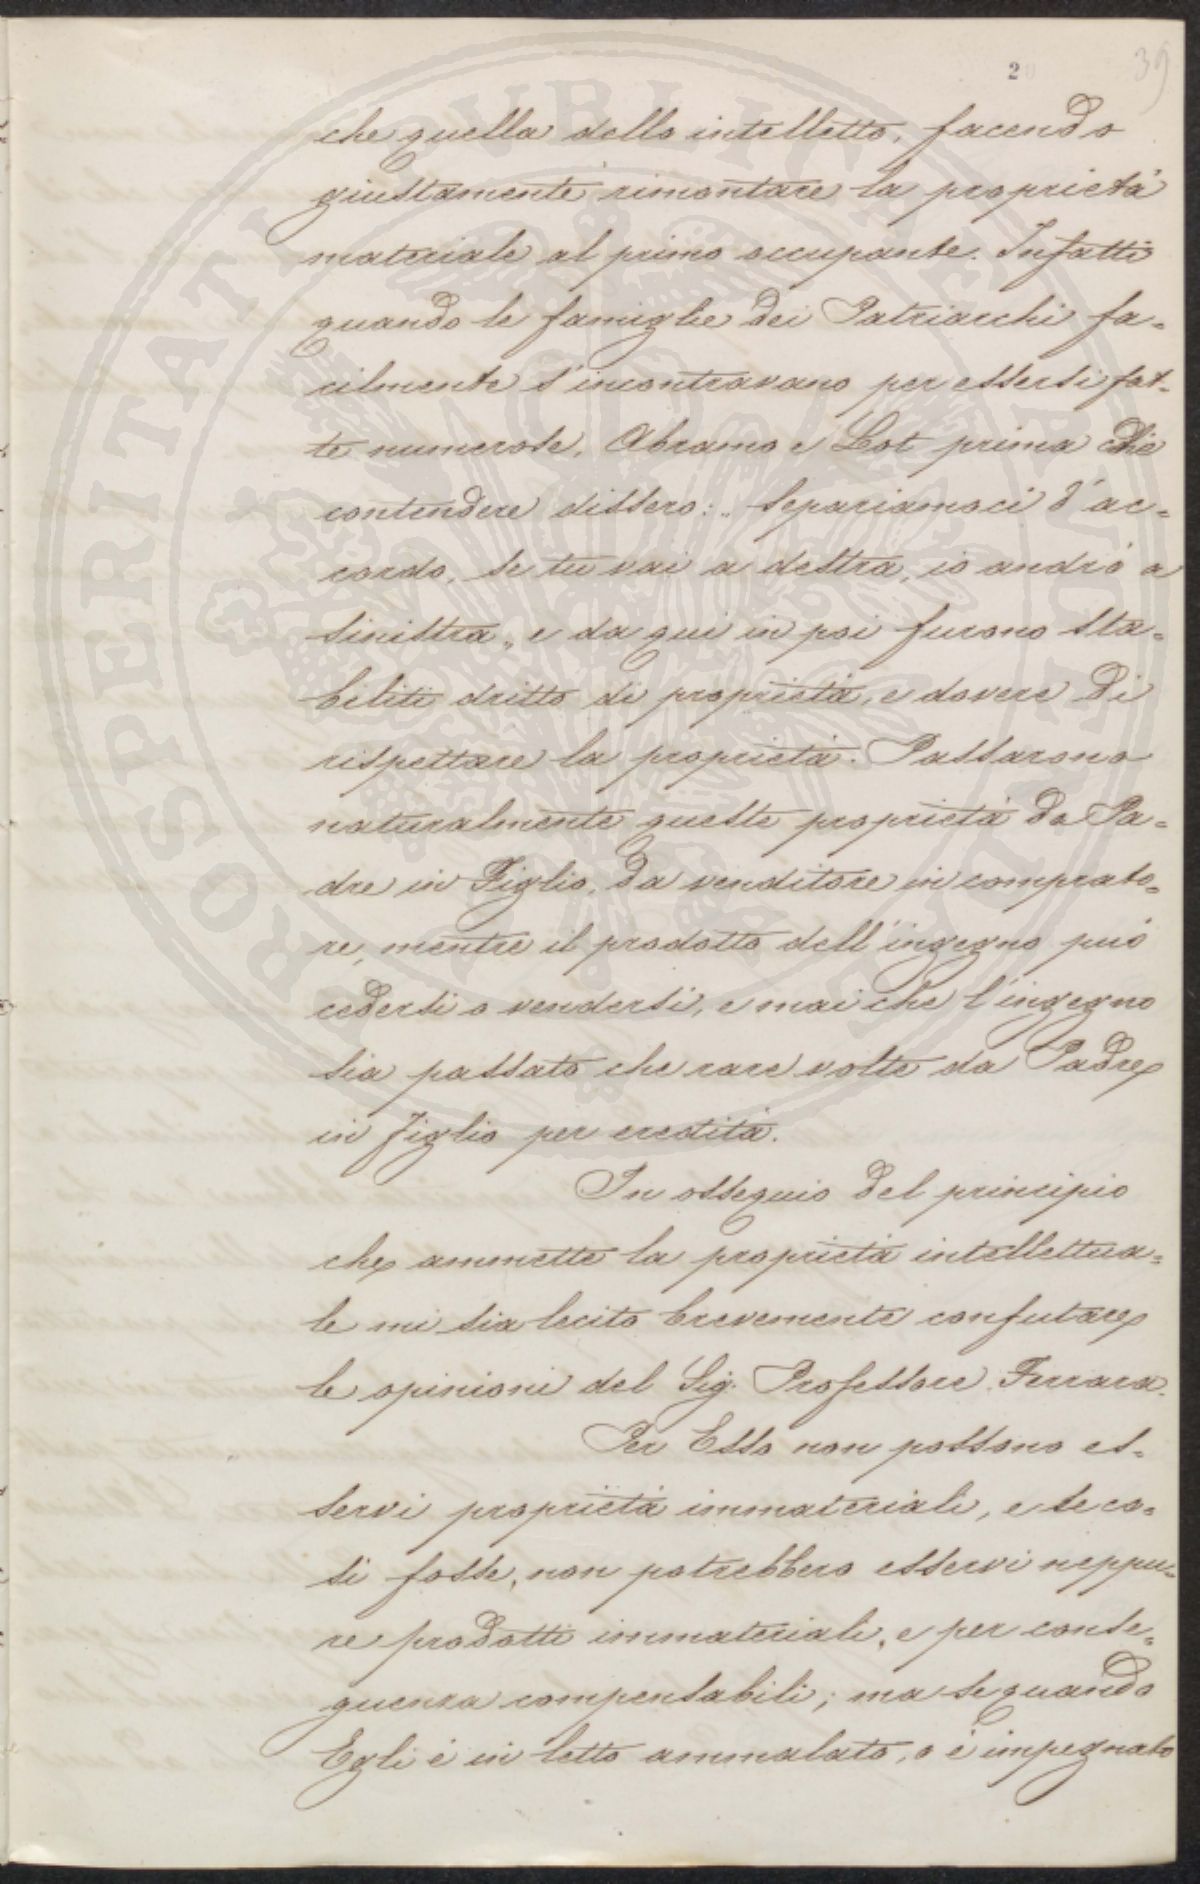 2
39
che quella dello intelletto, facendo
giustamente rimontare la proprietà
materiale al primo occupante. Infatti
quando le famiglie dei Patriarchi fa-
cilmente s'incontravano per essersi fat-
te numerose, Abramo e Lot prima che
contendere dissero: „ Separiamoci d'ac-
cordo, se tu vai a destra, io andrò a
sinistra „ e da qui in poi furono sta-
biliti dritto di proprietà, e dovere di
rispettare la proprietà. Passarono
naturalmente queste proprietà da Pa-
dre in Figlio, da venditore in comprato-
re, mentre il prodotto dell'ingegno può
cedersi o vendersi, e mai che l'ingegno
sia passato che rare volte da Padre
in figlio per eredità.
In ossequio del principio
che ammette la proprietà intellettua-
le mi sia lecito brevemente confutare
le opinioni del Sig. Professore Ferrara.
Per Esso non possono es-
servi proprietà immateriali, e se co-
sì fosse, non potrebbero esservi neppu-
re prodotti immateriali, e per conse-
guenza compensabili; ma se quando
Egli è in letto ammalato, o è impegnato
PROSPERITATI PVBLICAE AVGENDAE